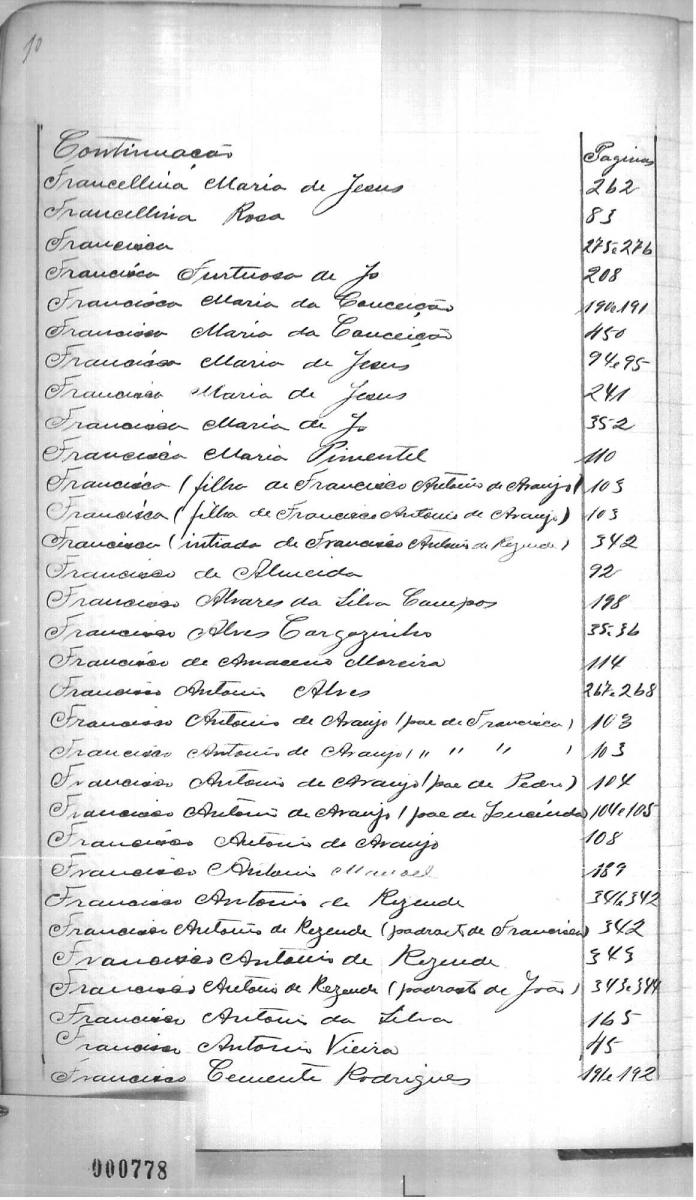 10
Continuação Paginas
Francellina Maria de Jesus 262
Francellina Rosa 83
Francisca 275e276
Francisca Furtuosa de Jo 208
Francisca Maria da Conceição 190e191
Francisca Maria da Conceição 450
Francisca Maria de Jesus 94e95
Francisca Maria de Jesus 241
Francisca Maria de Jo 352
Francisca Maria Pimentel 110
Francisca (filha de Francisco Antonio de Araujo) 103
Francisca (filha de Francisco Antonio de Araujo) 103
Francisca (intiada de Francisco Antonio de Rezende) 342
Francisco de Almeida 92
Francisco Alvares da Silva Campos 198
Francisco Alves Cargozinho 35e36
Francisco de Amaceno Moreira 114
Francisco Antonio Alves 267e268
Francisco Antonio de Araujo (pae de Francisca) 103
Francisco Antonio de Araujo (" " " ) 103
Francisco Antonio de Araujo (pae de Pedro) 104
Francisco Antonio de Araujo (pae de Lucinda) 104e105
Francisco Antonio de Araujo 108
Francisco Antonio Manoel 189
Francisco Antonio de Rezende 341e342
Francisco Antonio de Rezende (padrasto de Francisca) 342
Francisco Antonio de Rezende 343
Francisco Antonio de Rezende (padrasto de João) 343e344
Francisco Antonio da Silva 165
Francisco Antonio Vieira 45
Francisco Cemente Rodrigues 191e192
000778